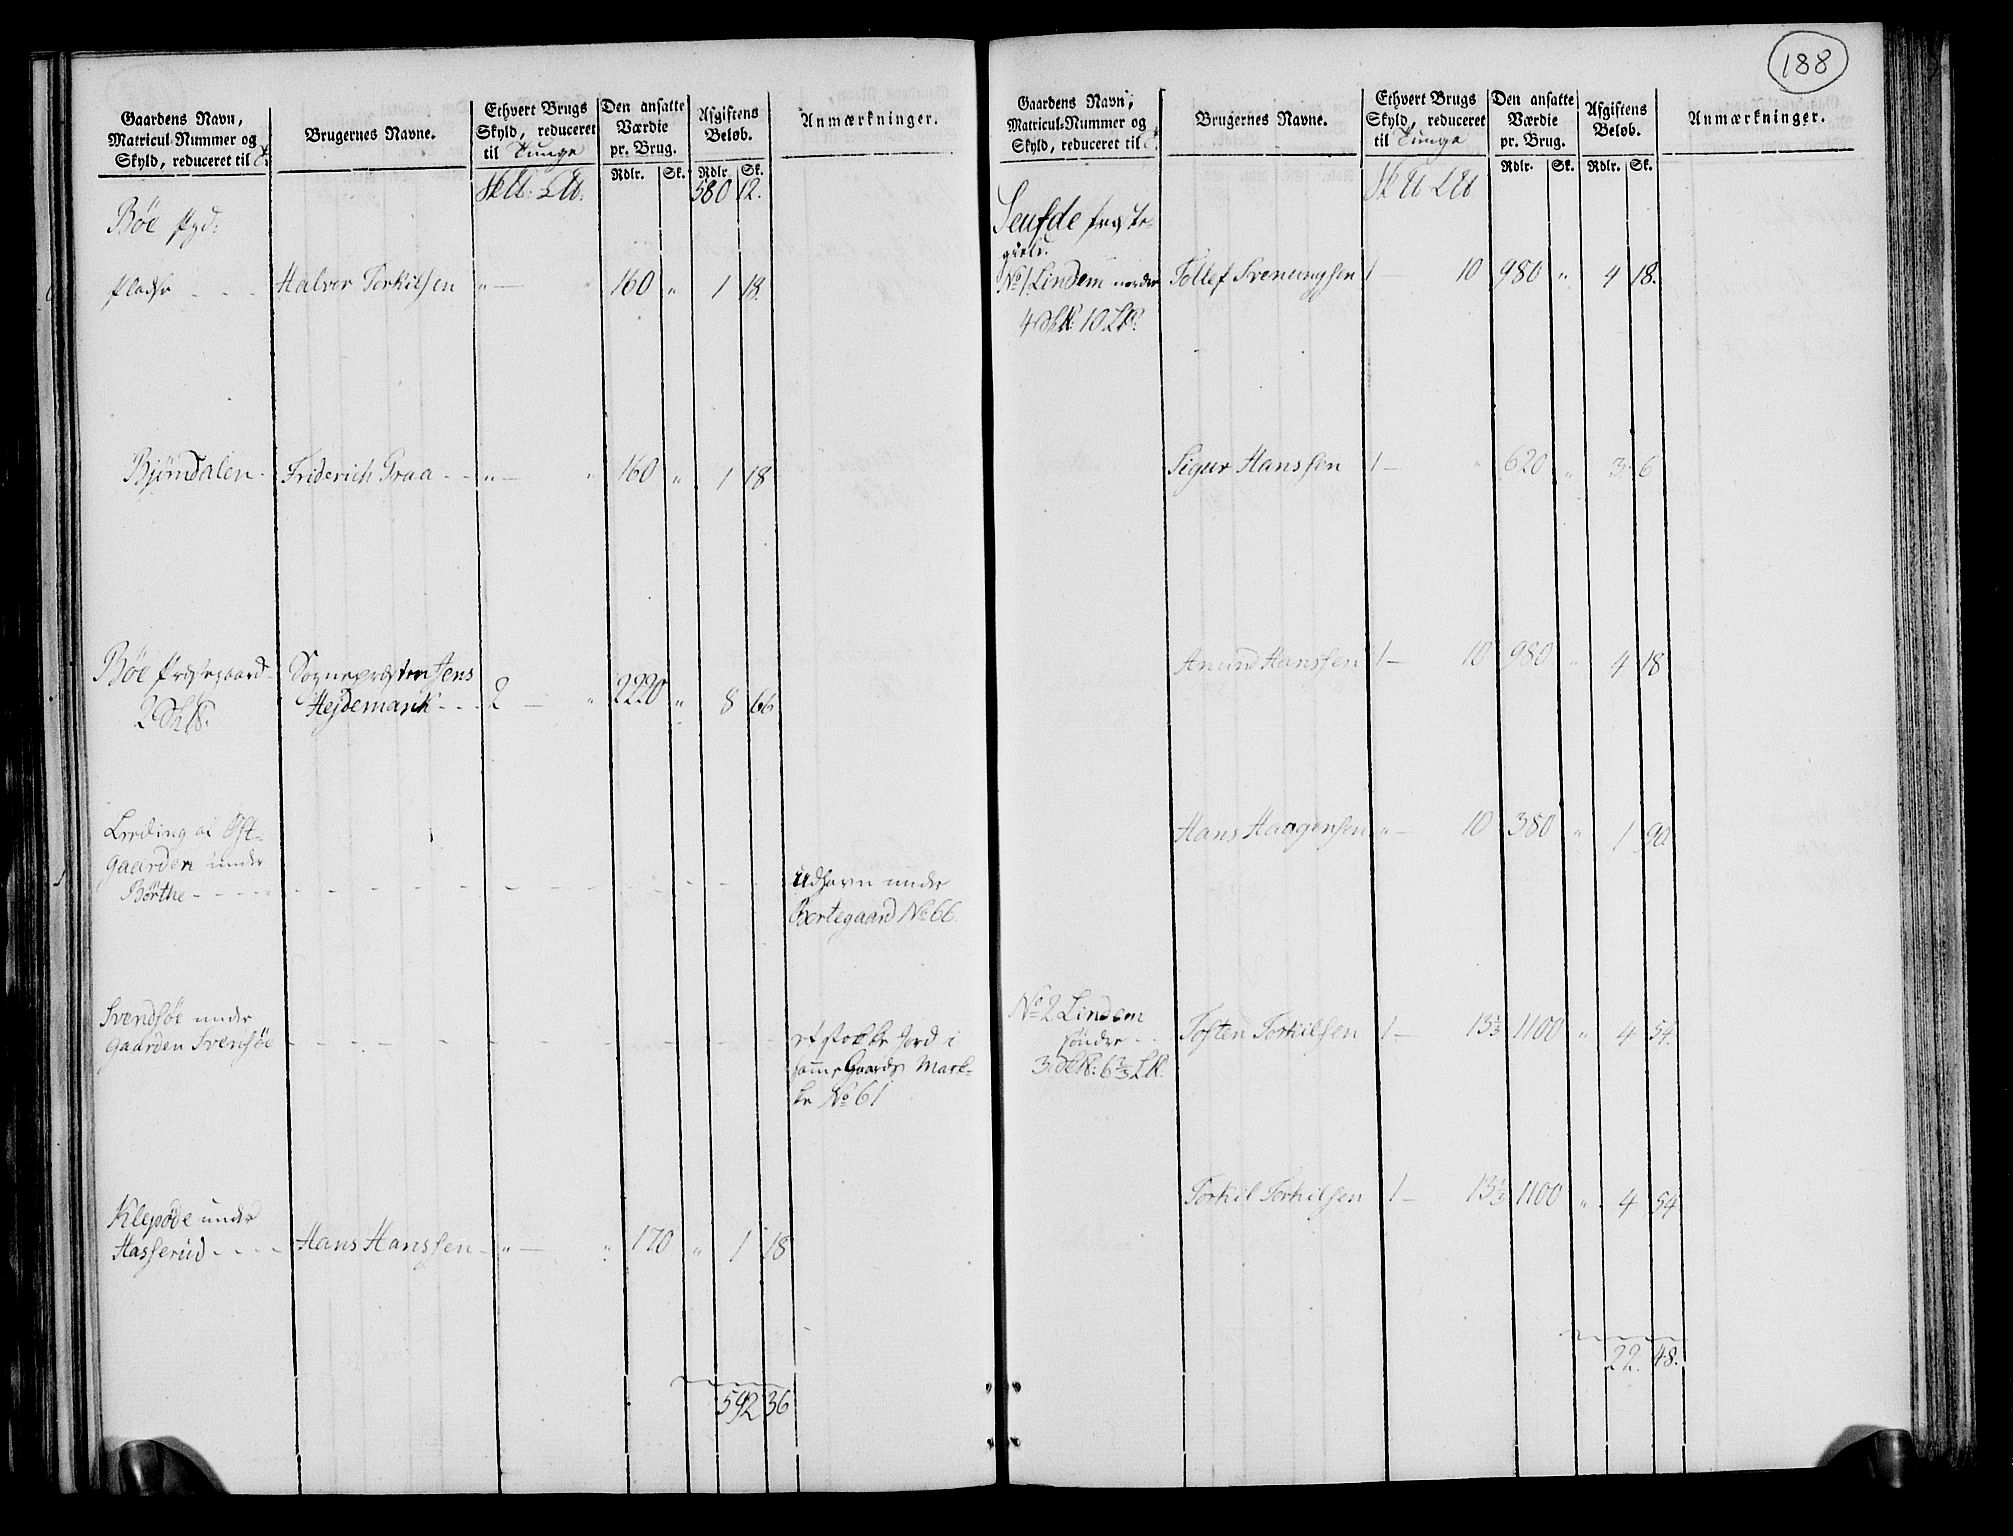 188
Gaardens Navn, Matricul-Nummer og Skyld, reduceret til
Brugernes Navne.
Ethvert Brugs Skyld, reduceret til Tunge
Den ansatte Værdie pr. Brug.
Afgiftens Beløb.
Anmærkninger.
Rdlr. Sk. Rdlr. Sk.
580 12.
Bøe
Pladse - - - Halvor Torkilsen " — " 160 " 1 18.
Bjørndalen - Friderich Graa - - " — " 160 " 1 18
Bøe Præstegaard - Sognepræsten Jens
2 Hejdemark - - - 2 — " 2220 " 8 66
gaarden under
Børthe - - - -
Udhavn under
Børtegaard No 66
Svendsøe under
gaarden Svensøe
et stökke Jord i
samme Gaards Mark-
ke No 61
Klepøde under
Hasserud - - - - Hans Hanssen - " — " 170 " 1 18
592 36
Gaardens Navn, Matricul-Nummer og Skyld, reduceret til
Brugernes Navne.
Ethvert Brugs Skyld, reduceret til Tunge
Den ansatte Værdie pr. Brug.
Afgiftens Beløb.
Anmærkninger.
Rdlr. Sk. Rdlr. Sk.
Seufde
No 1 Lindem nordre Tollef Svenungsen 1 — 10 980 " 4 18.
4 10
Sigur Hanssen 1 — " 620 " 3 6
Amund Hanssen 1 — 10 980 " 4 18
Hans Haagensen " — 10 380 " 1 90
No 2 Lindem
søndre - - Tosten Torkilsen 1 — 13⅓ 1100 " 4 54.
3 6⅔
Torkil Torkilsen 1 — 13⅓ 1100 " 4 54
22. 48.